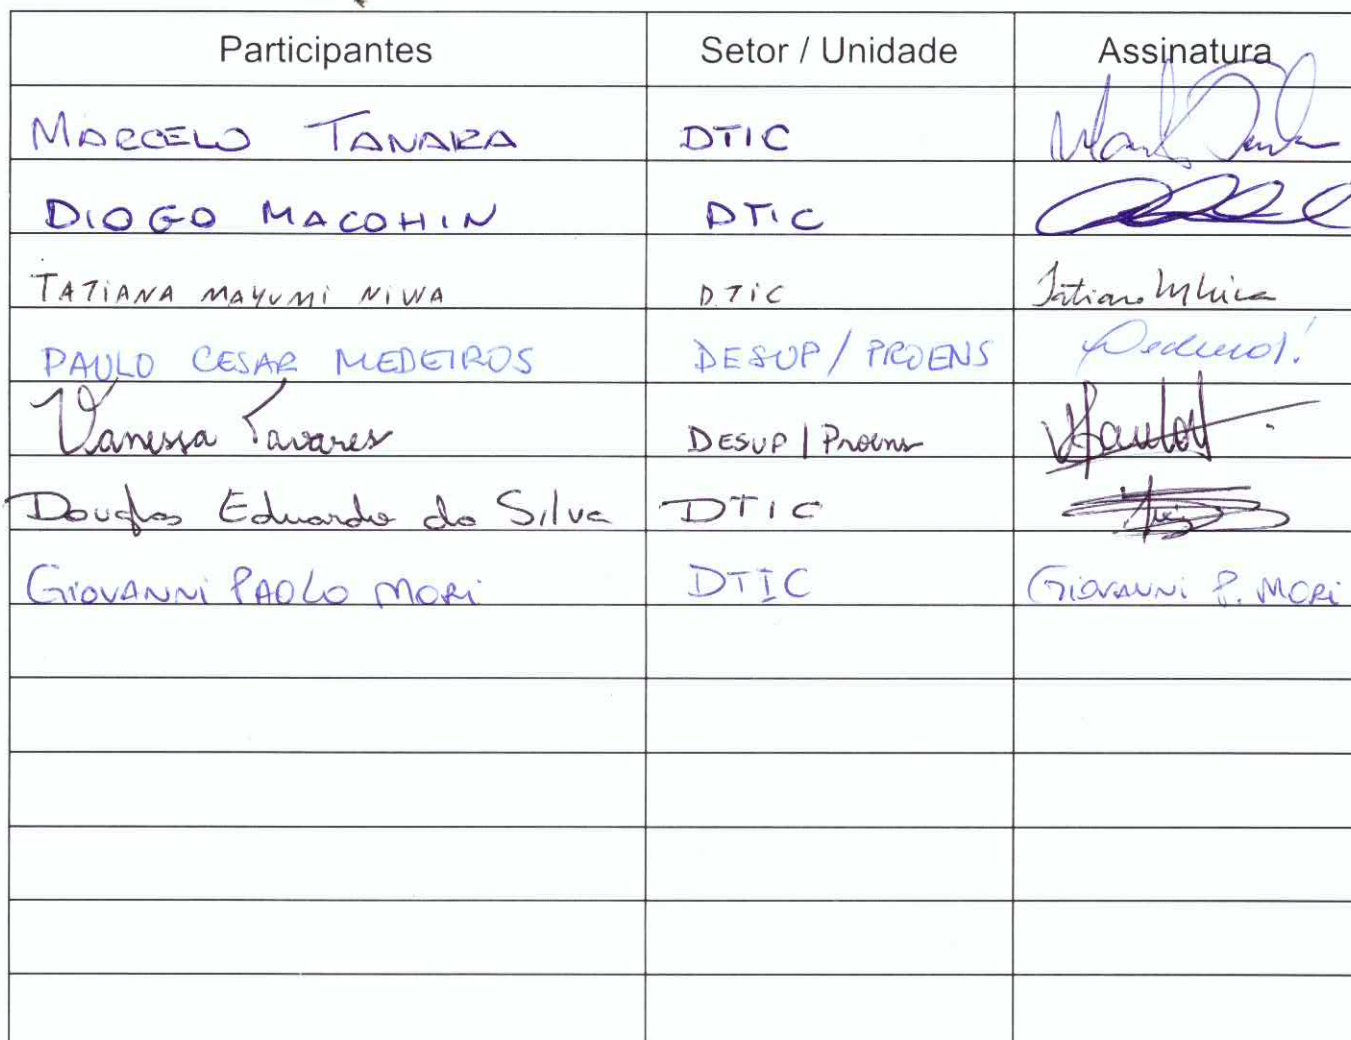 Participantes Setor / Unidade Assinatura
MARCELO TANAKA DTIC
DIOGO MACOHIN DTIC
TATIANA MAYUMI NIWA DTIC Tatiana
PAULO CESAR MEDEIROS DESUP / PROENS
Vanessa Tavares DESUP / Proens
Douglas Eduardo da Silva DTIC
GIOVANNI PAOLO MORI DTIC GIOVANNI P. MORI